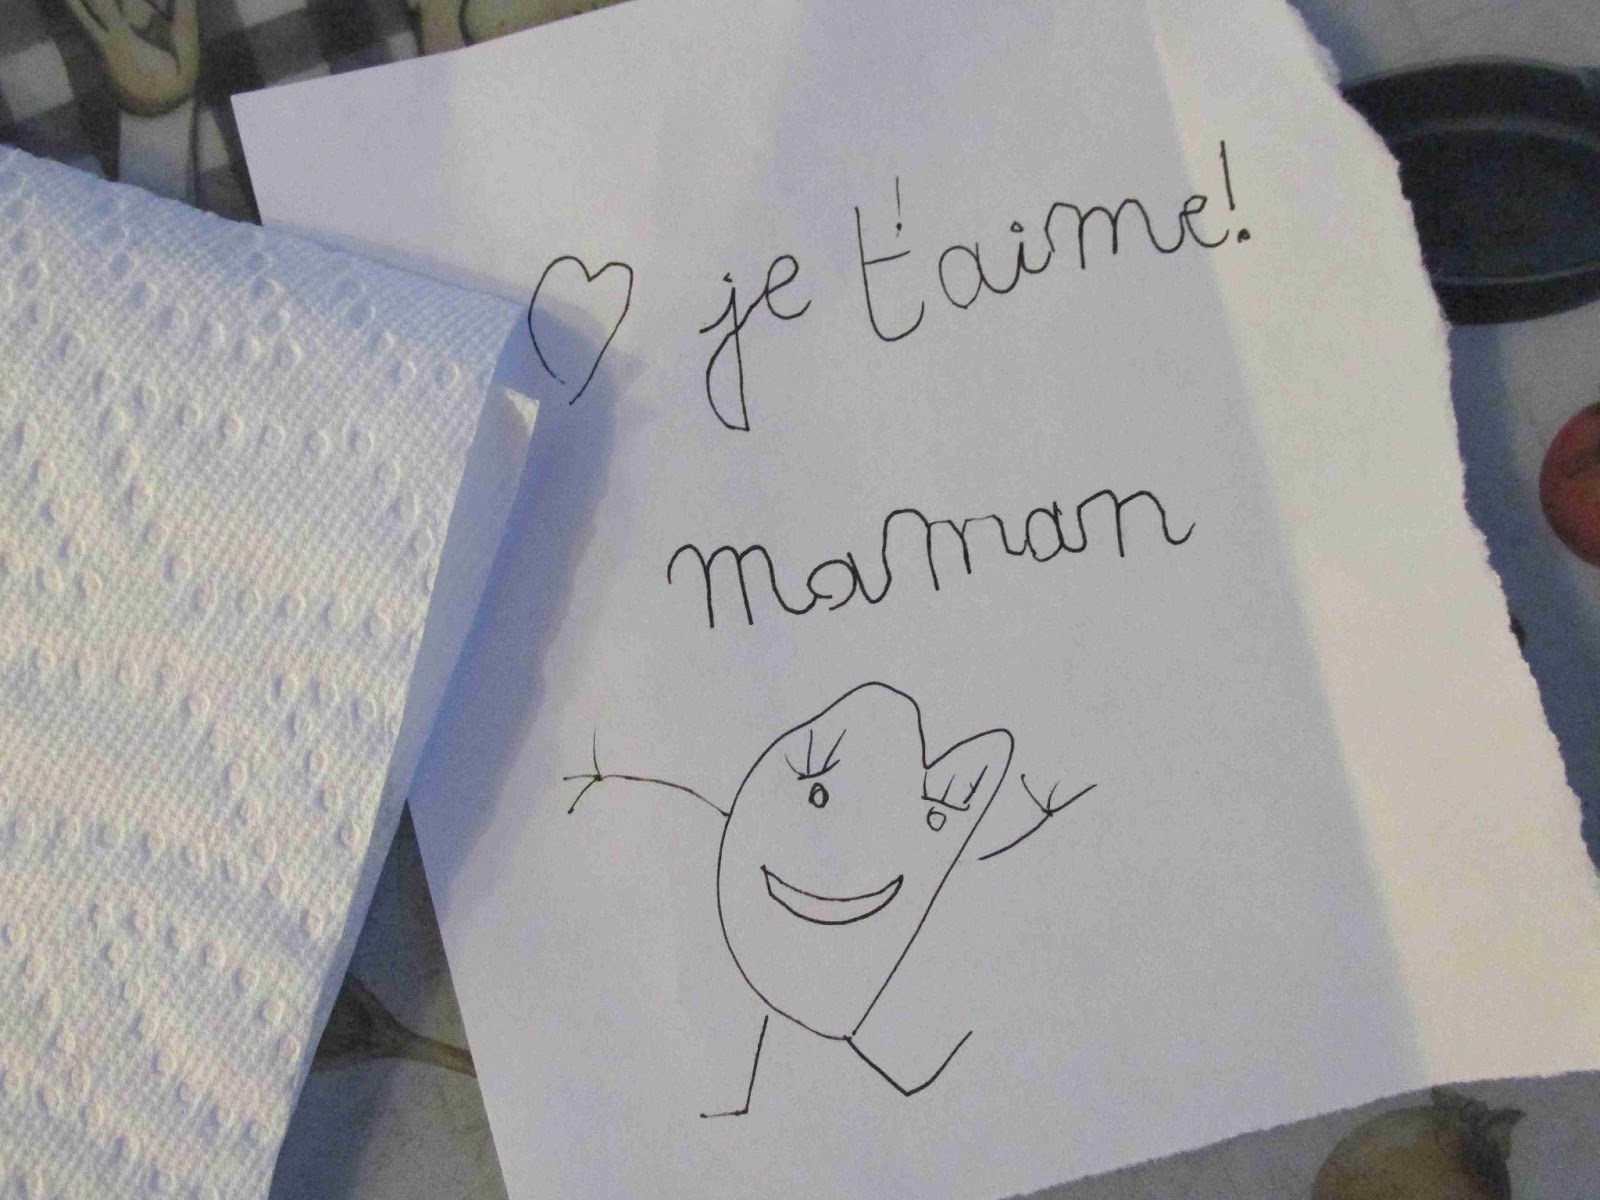 ♡ je t'aime!
maman